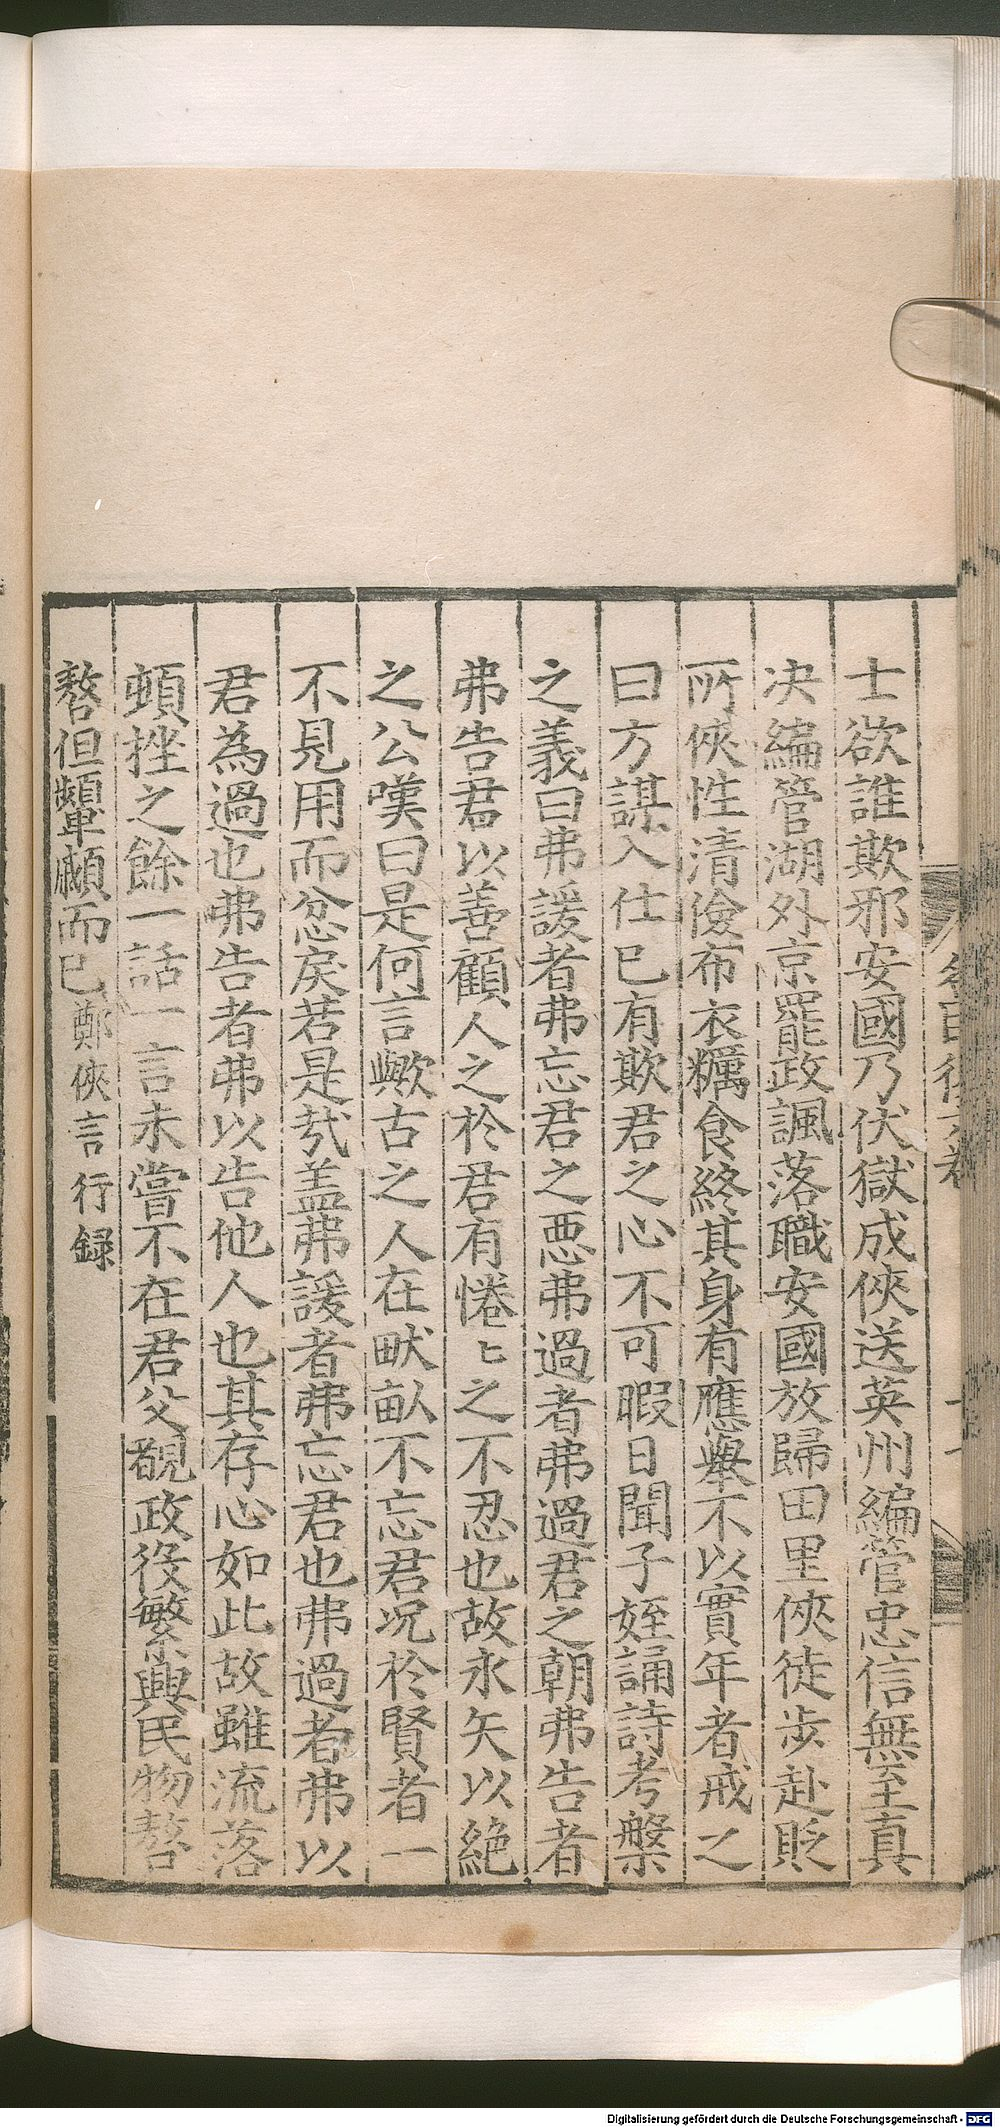 士欲誰欺邪安國乃伏獄成俠送英州編管忠信無至真
决編管湖外京罷政諷落職安國放歸田里俠徒步赴貶
所俠性清儉布衣糲食終其身有應舉不以實年者戒之
曰方謀入仕已有欺君之心不可暇日聞子姪誦詩考槃
之義曰弗諼者弗忘君之惡弗過者弗過君之朝弗告者
弗告君以善顧人之於君有惓〻之不忍也故永矢以絶
之公嘆曰是何言歟古之人在畎畝不忘君况於賢者一
不見用而忿戾若是㦲盖弗諼者弗忘君也弗過者弗以
君為過也弗告者弗以告他人也其存心如此故雖流落
頓挫之餘一話一言未嘗不在君父覩政役繁興民物嗸
嗸但顰顣而已鄭俠言行録
Digitalisierung gefördert durch die Deutsche Forschungsgemeinschaft - DFG